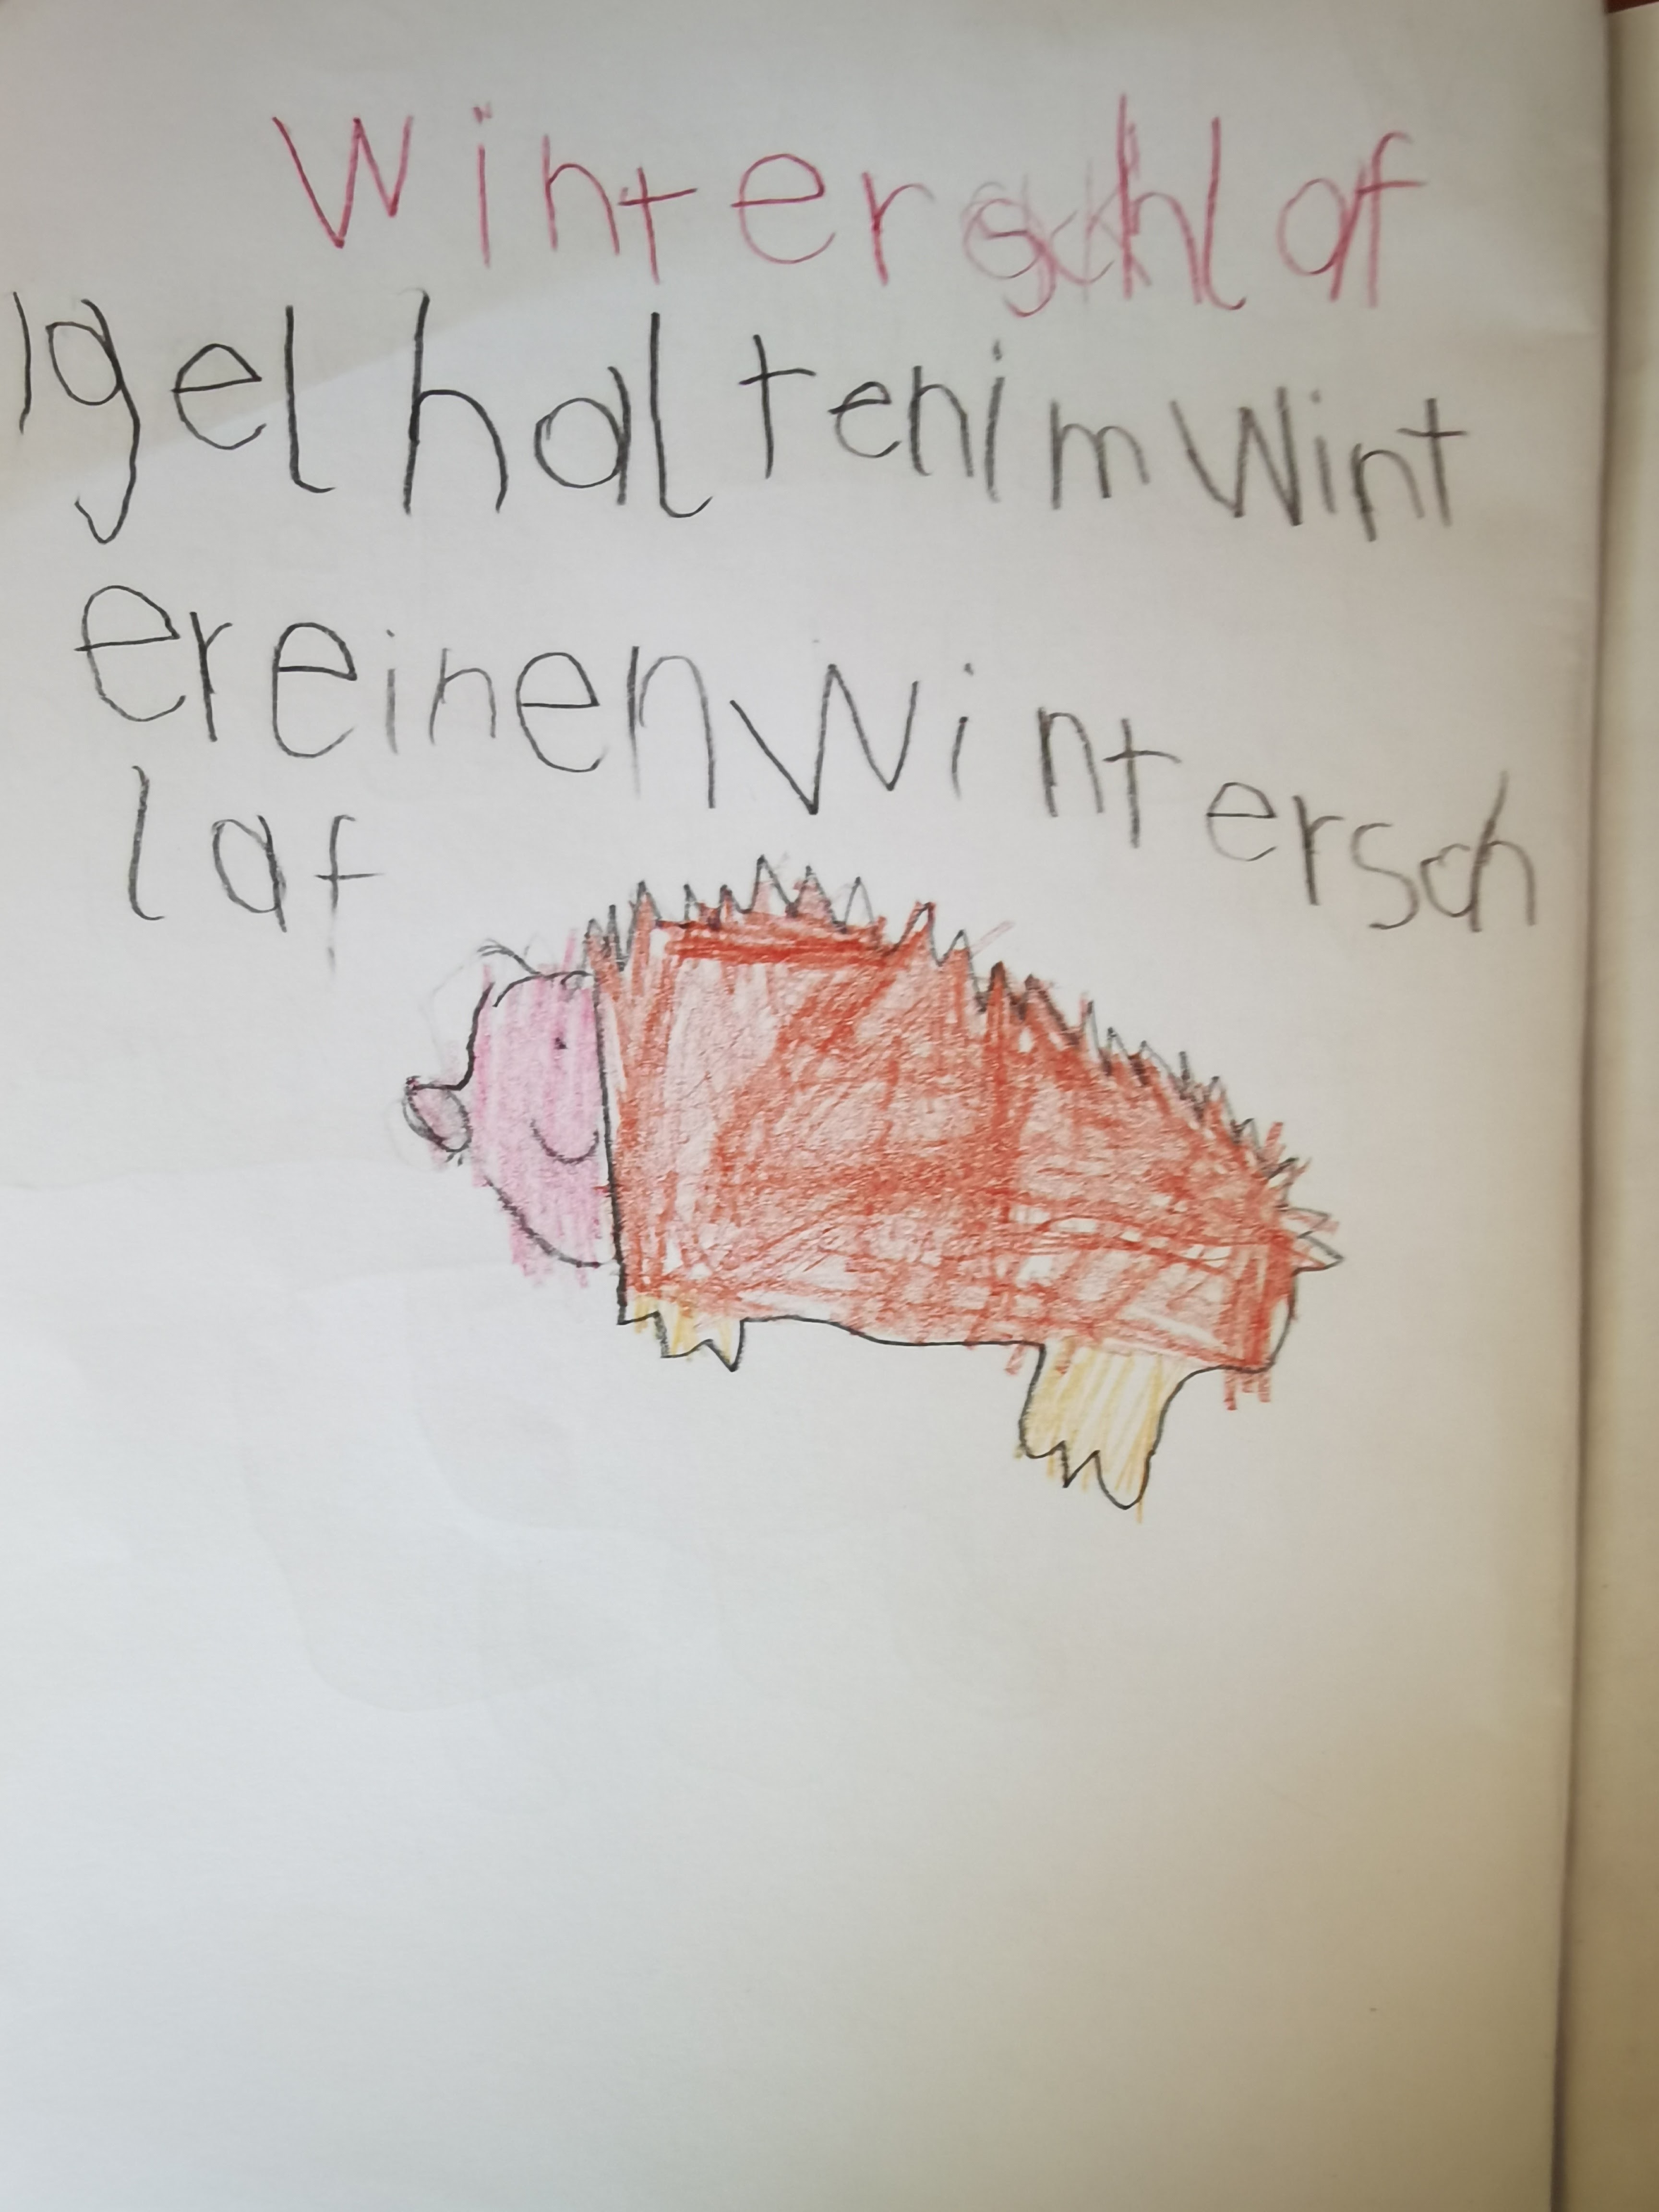 Winterschlaf
Igel halten im Wint
er einen Wintersch
laf